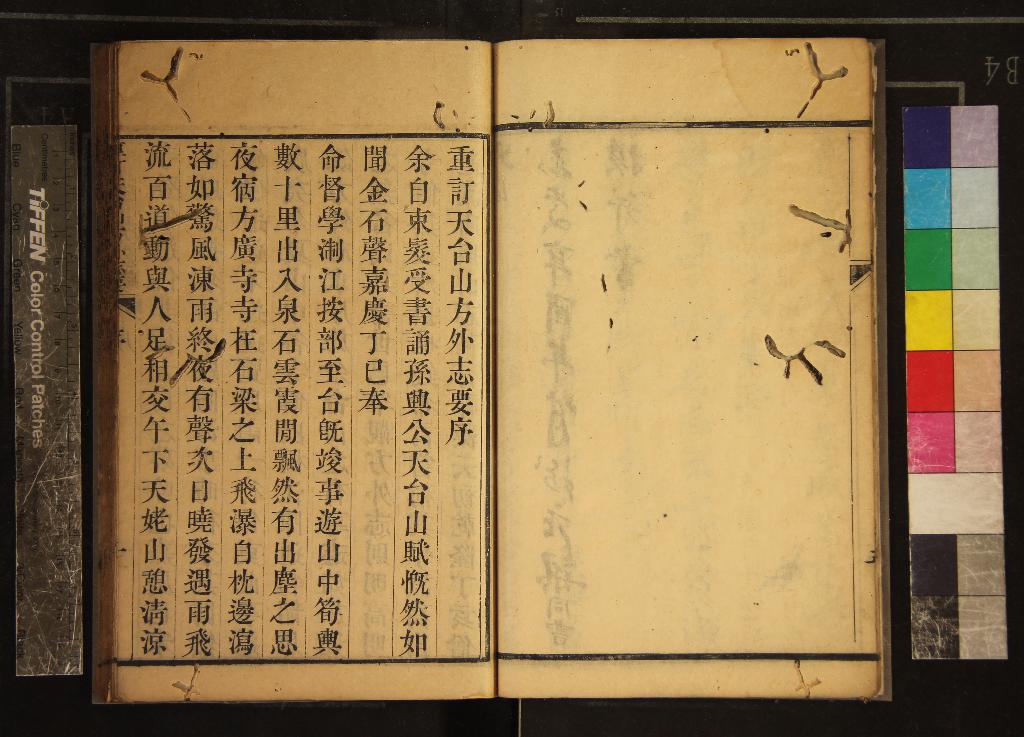 重訂天台山方外志要序
余自束髮受書誦孫興公天台山賦慨然如
聞金石聲嘉慶丁巳奉
命督學淛江按部至台旣竣事遊山中筍輿
數十里出入泉石雲霞閒飄然有出塵之思
夜宿方廣寺寺在石梁之上飛瀑自枕邊瀉
落如驚風涷雨終夜有聲次日曉發遇雨飛
流百道動與人足相交午下天姥山憩清涼
TIFFEN Color Control Patches
Blue
Cyan
Green
Yellow
Red
Black
B4